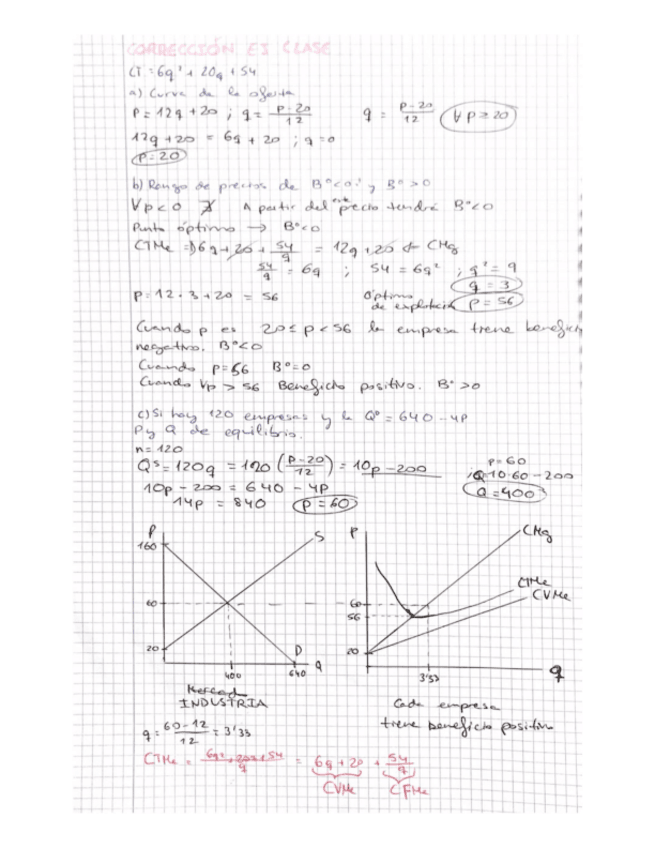 CORRECCIÓN EJ CLASE
CT = 6q² + 20q + 54
a) Curva de la oferta
P = 12q + 20 ; q = P-20/12    q = P-20/12    ∀ p ≥ 20
12q + 20 = 6q + 20 ; q = 0
P = 20
b) Rango de precios de Bº<0 y Bº>0
∀p<0 ∄ A partir del este precio tendrá Bº<0
Punto óptimo → Bº<0
CTMe => 6q + 20 + 54/q = 12q + 20 CMg
54/q = 6q ; 54 = 6q² ; q² = 9
q = 3
p = 12 · 3 + 20 = 56    Óptimo de explotación    P = 56
Cuando p es 20 ≤ p < 56 la empresa tiene benefici
negativo. Bº<0
Cuando p = 56 Bº = 0
Cuando ∀p > 56 Beneficio positivo. Bº > 0
c) Si hay 120 empresas y la Qº = 640 - 4P
P y Q de equilibrio.
n = 120
Qˢ = 120q = 120 (P-20/12) = 10p - 200    p = 60
; Q = 10·60 - 200
10p - 200 = 640 - 4p    Q = 400
14p = 840    P = 60
P    S    P    CMg
160
CTMe
CVMe
60    60
56
20    D    20
400    640    Q    3'33    q
Mercad
INDUSTRIA
Cada empresa
tiene beneficio positivo
q = 60-12/12 = 3'33
CTMe = 6q² + 20q + 54/q = 6q + 20 + 54/q
CVMe    CFMe